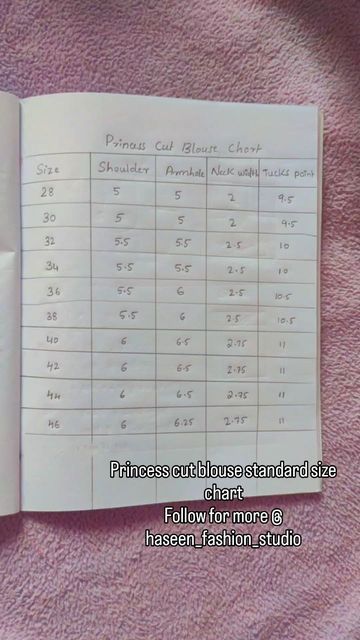 Princess Cut Blouse Chart
Size Shoulder Armhole Neck width Tucks point
28 5 5 2 9.5
30 5 5 2 9.5
32 5.5 5.5 2.5 10
34 5.5 5.5 2.5 10
36 5.5 6 2.5 10.5
38 5.5 6 2.5 10.5
40 6 6.5 2.75 11
42 6 6.5 2.75 11
44 6 6.5 2.75 11
46 6 6.25 2.75 11
Princess cut blouse standard size
chart
Follow for more @
haseen_fashion_studio